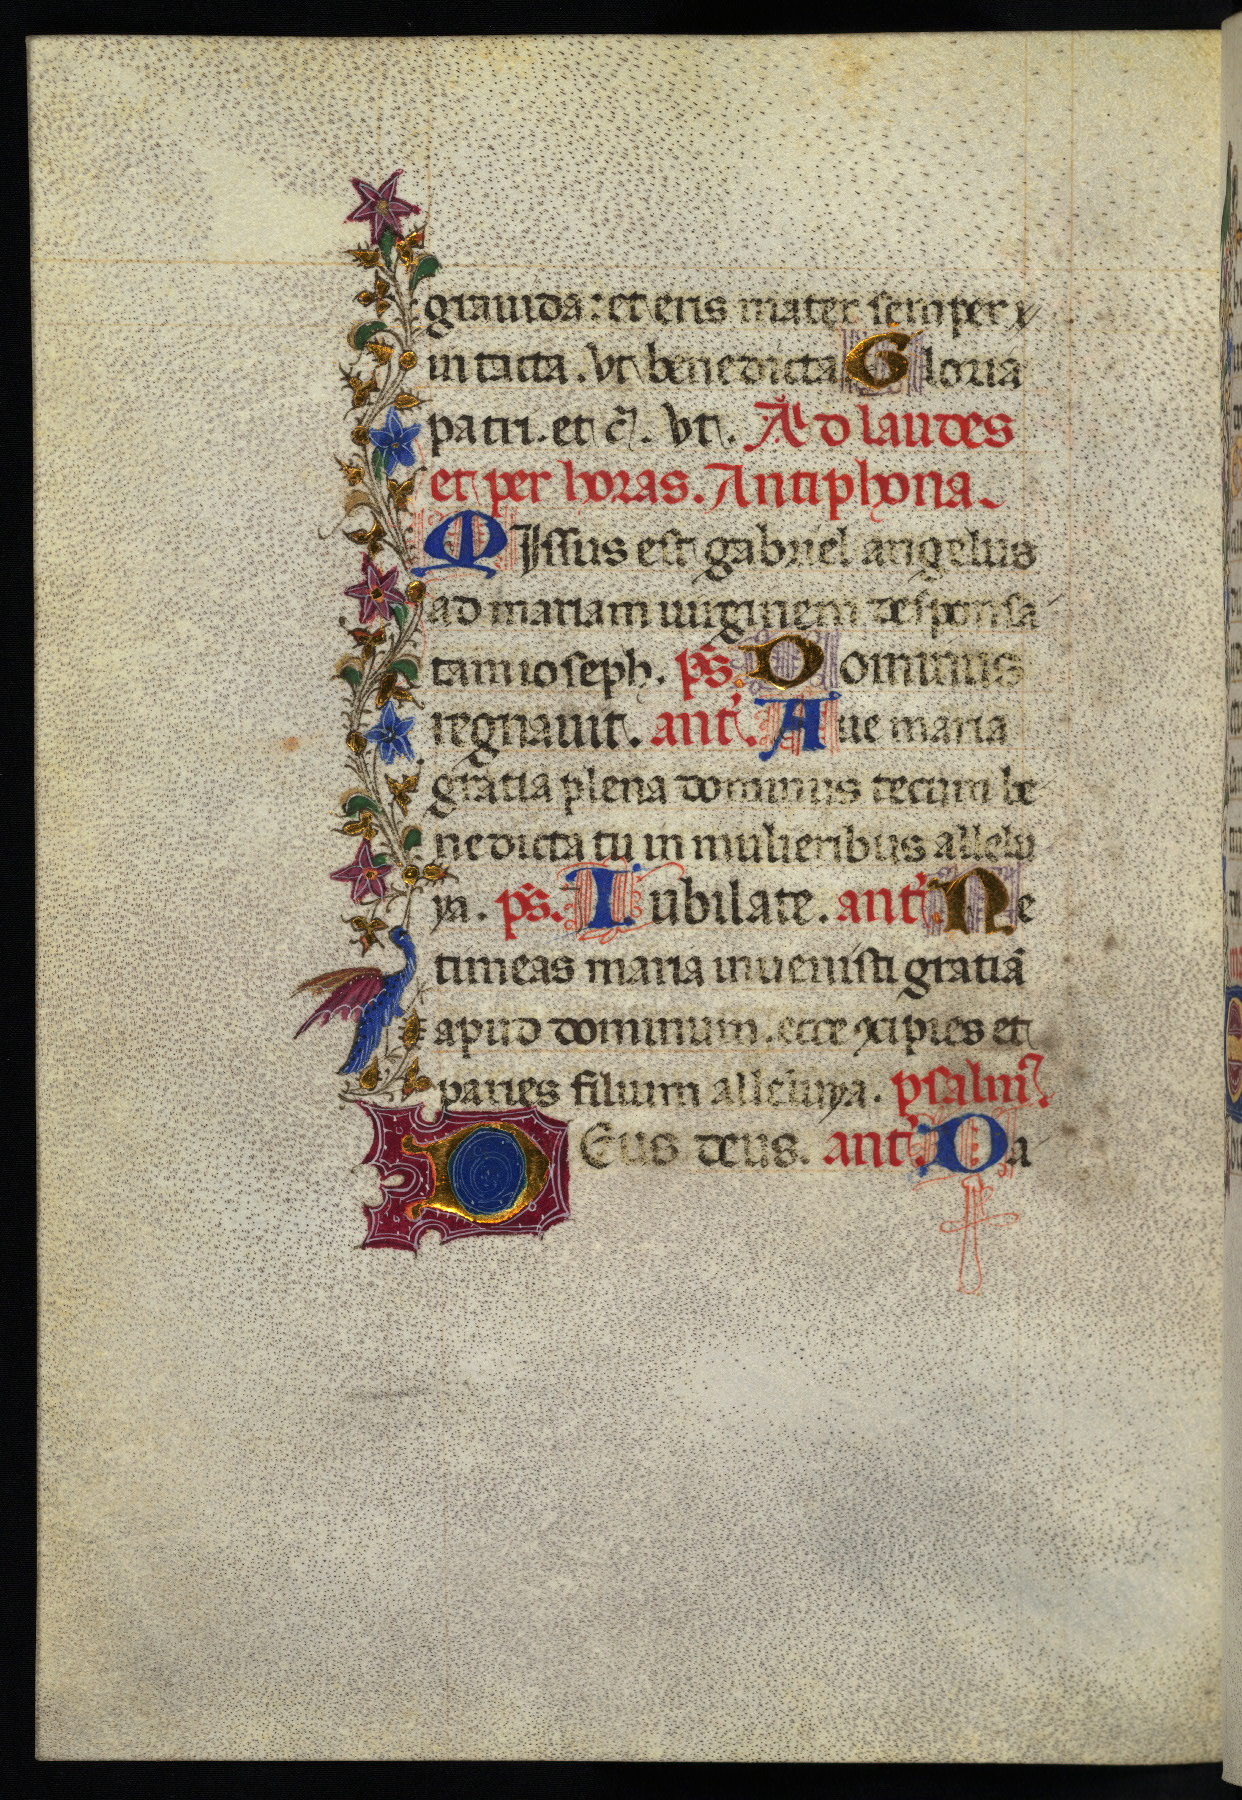 grauida: et eris mater semper
intacta. Vt benedicta Gloria
patri. et c̃. Vt. Ad laudes
et per horas. Antiphona.
MIssus est gabriel angelus
ad mariam uirginem desponsa
tam ioseph. ps̃. Dominus
regnauit. ant̃. Aue maria
gratia plena dominus tecum be
nedicta tu in mulieribus allelu
ya. ps̃. Iubilate. ant̃. Ne
timeas maria inuenisti gratiā
apud dominum. ecce ɔcipies et
paries filium alleluya. psalm̃.
DEus deus. ant̃. Da